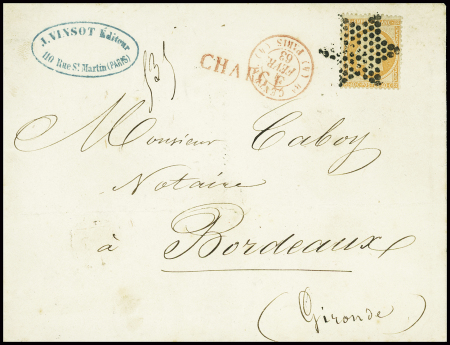 J. VINSOT Éditeur
110 Rue St. Martin (PARIS)
CHARGÉ
PARIS
FEVR
Monsieur Caboy
Notaire
à Bordeaux
(Gironde)